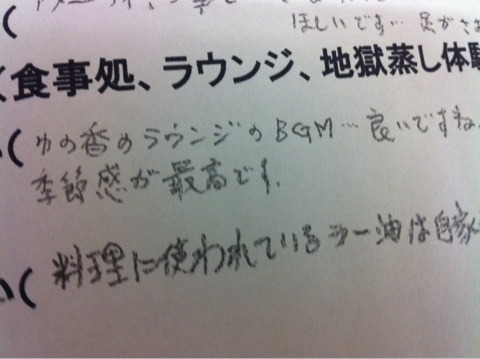 ほしいです…足がさ
食事処、ラウンジ、地獄蒸し体験
ゆの香のラウンジのBGM…良いですね、
季節感が最高です。
料理に使われているラー油は自家